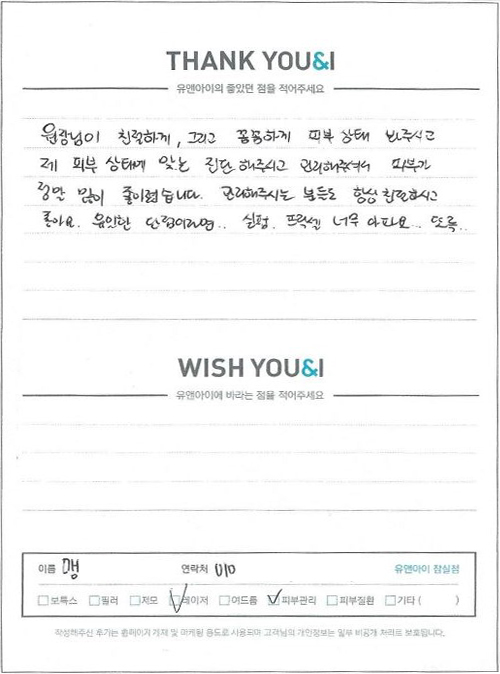 THANK YOU&I
유앤아이의 좋았던 점을 적어주세요
원장님이 친절하게, 그리고 꼼꼼하게 피부 상태 봐주시고
제 피부 상태에 맞는 진단 해주시고 관리해주셔서 피부가
정말 많이 좋아졌습니다. 관리해주시는 분들도 항상 친절하시고
좋아요. 유일한 단점이라면.. 실펌. 프락셀 너무 아파요... 또륵..
WISH YOU&I
유앤아이에 바라는 점을 적어주세요
이름 맹 연락처 010 유앤아이 잠실점
보톡스 필러 제모 레이저 여드름 피부관리 피부질환 기타 ( )
작성해주신 후기는 홈페이지 기재 및 마케팅 용도로 사용되며 고객님의 개인정보는 일부 비공개 처리로 보호됩니다.